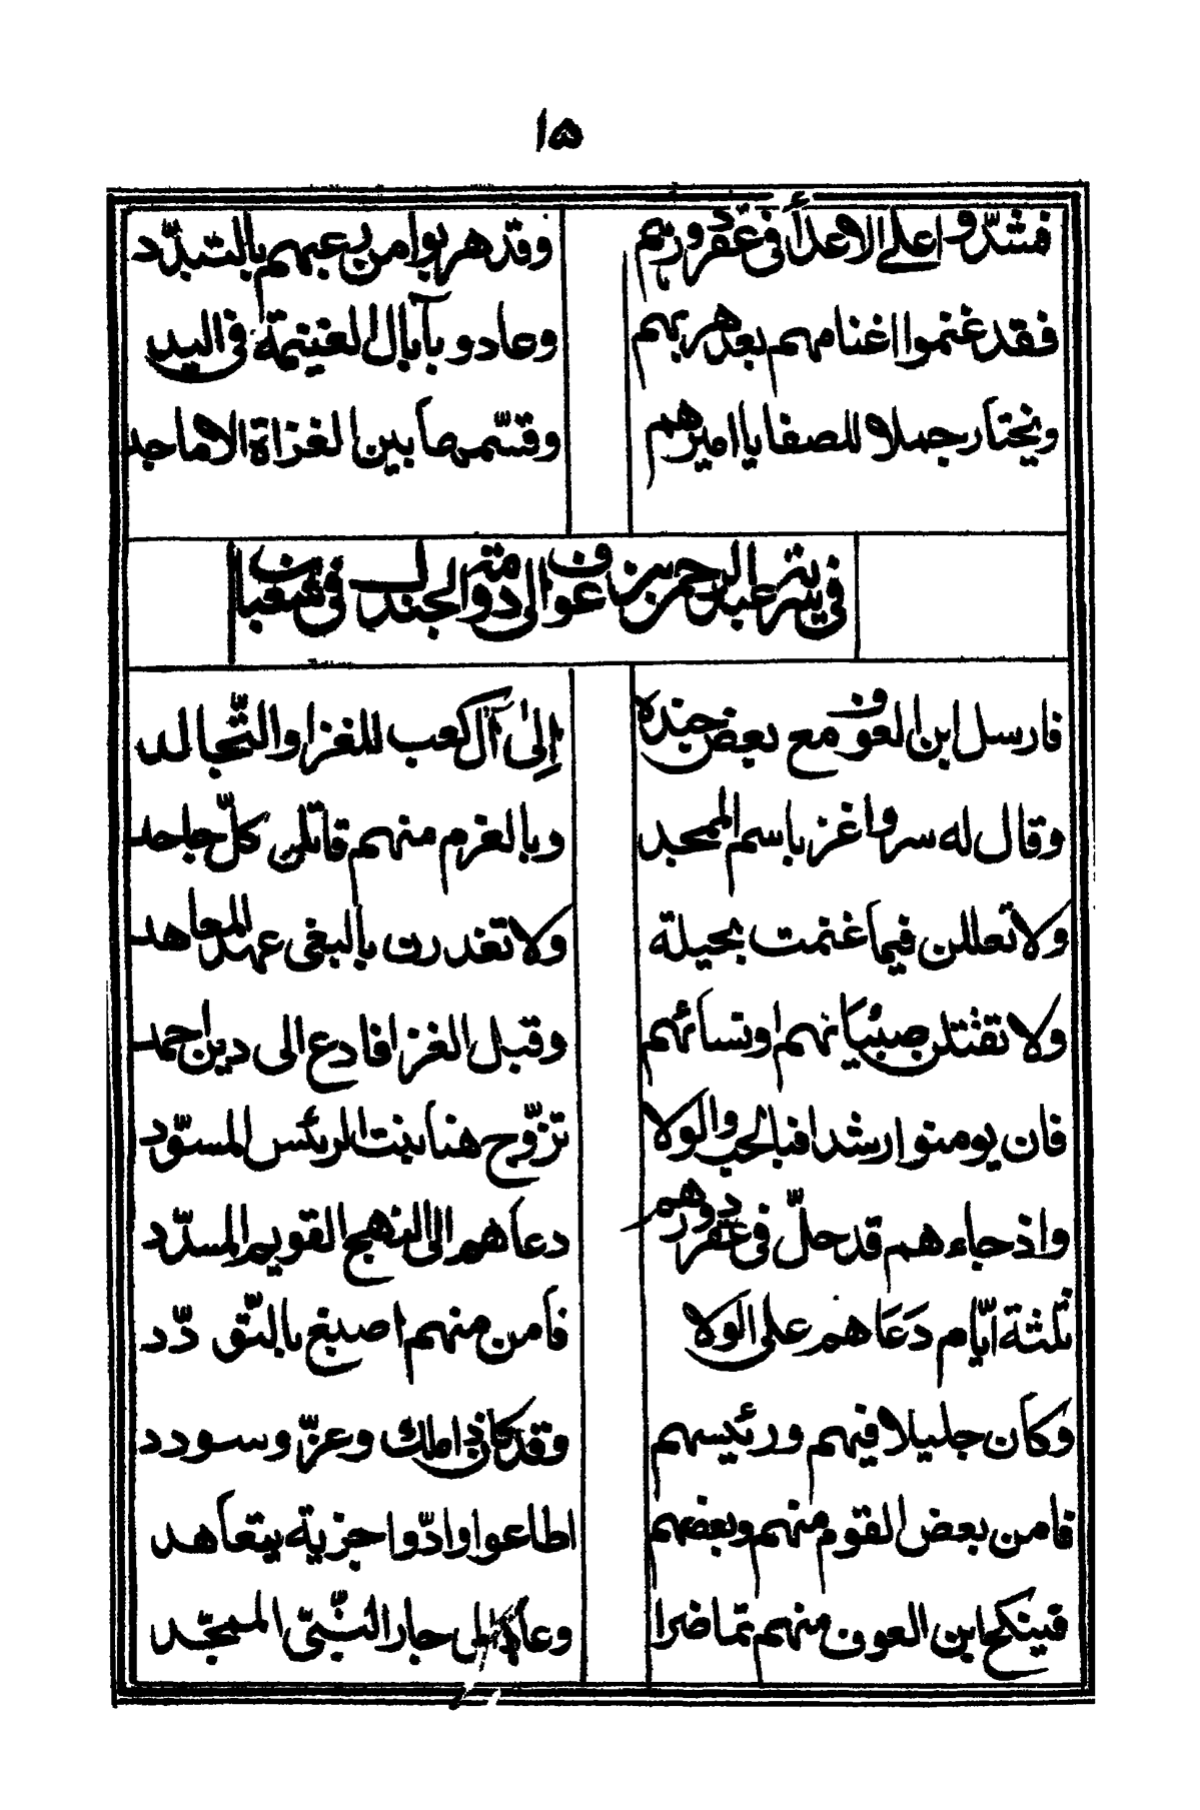 ۱۵
فشدّوا على الاعداء فى عقر دورهم وقد هربوا من رعبهم بالتبدّد
فقد غنموا اغنامهم بعد هربهم وعادوا بآبال الغنيمة فى اليد
ويختار جملا للصفايا اميرهم وقسّمها بين الغزاة الاماجد
فى سرية عبد الرحمن بن عوف الى دومة الجندل فى شعبان
فارسل ابن العوف مع بعض جنده إلى آل كعب للغزا والتّجالد
وقال له سر واغز باسم الممجد وبالغرم منهم قاتلن كلّ جاحد
ولا تعللن فيما غنمت بحيلة ولا تغدرن بالبغى عهد المعاهد
ولا تقتلن صبيانهم او نسائهم وقبل الغزا فادع الى دين احمد
فان يومنوا رشدا فبالحب والولا تزوّج هنا بنت الرئس المسوّد
واذ جاءهم قد حلّ فى عقر دورهم دعاهم الى النهج القويم المسدّد
ثلثة ايّام دعاهم على الولا فامن منهم اصبغ بالتّودّد
وكان جليلا فيهم ورئيسهم وقد كان ذا ملك وعزّ وسودد
فامن بعض القوم منهم وبعضهم اطاعوا وادّوا جزية بتعاهد
فينكح ابن العوف منهم تماضرا وعاد الى جار النّبىّ الممجّد